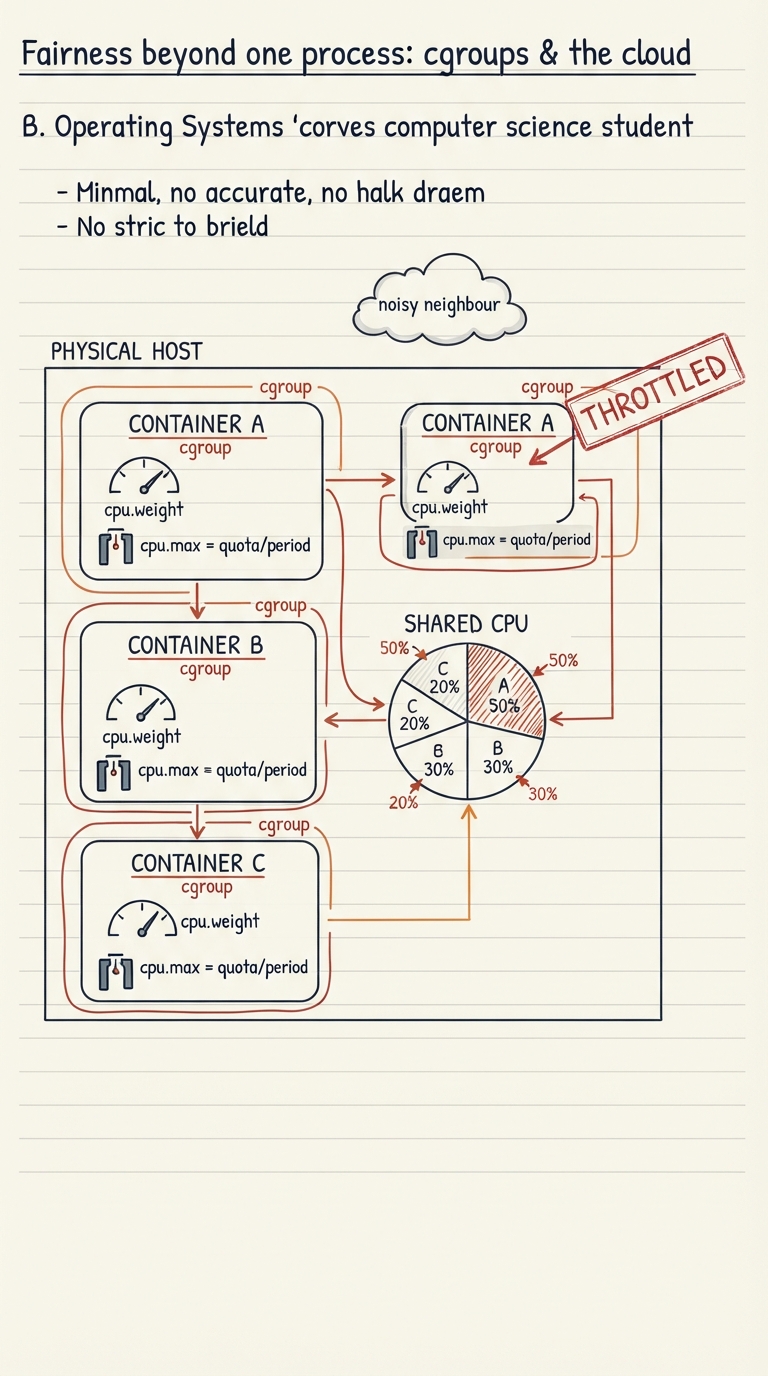 Fairness beyond one process: cgroups & the cloud
B. Operating Systems 'corves computer science student
- Minmal, no accurate, no halk draem
- No stric to brield
noisy neighbour
PHYSICAL HOST
cgroup
CONTAINER A
cgroup
cpu.weight
cpu.max = quota/period
cgroup
THROTTLED
CONTAINER A
cgroup
cpu.weight
cpu.max = quota/period
cgroup
CONTAINER B
cgroup
cpu.weight
cpu.max = quota/period
SHARED CPU
50%
50%
C
20%
A
50%
C
20%
B
30%
B
30%
20%
30%
cgroup
CONTAINER C
cgroup
cpu.weight
cpu.max = quota/period